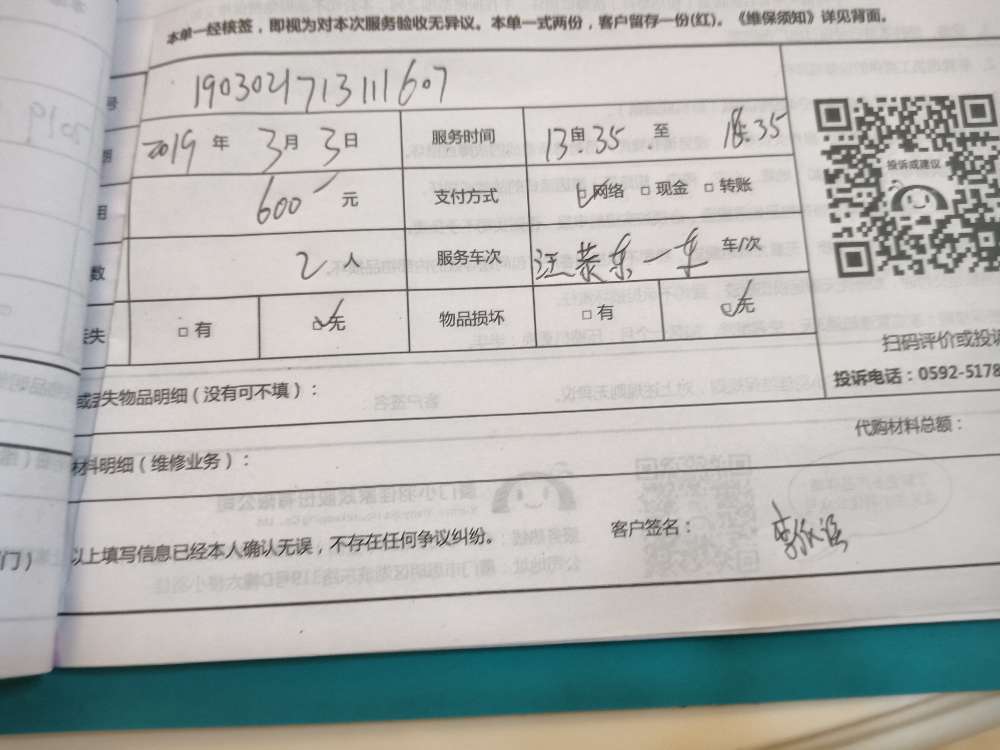 本单一经核签，即视为对本次服务验收无异议。本单一式两份，客户留存一份(红)。《维保须知》详见背面。
号 190302171311607
2019 年 3月 3日 服务时间 13:35 至 18:35
投诉或建议
用 600 元 支付方式 □网络 □现金 □转账
数 2人 服务车次 一车 车/次
丢失 □有 □无 物品损坏 □有 □无
扫码评价或投诉
投诉电话：0592-5178
或丢失物品明细（没有可不填）：
代购材料总额：
材料明细（维修业务）：
门） 以上填写信息已经本人确认无误，不存在任何争议纠纷。 客户签名：